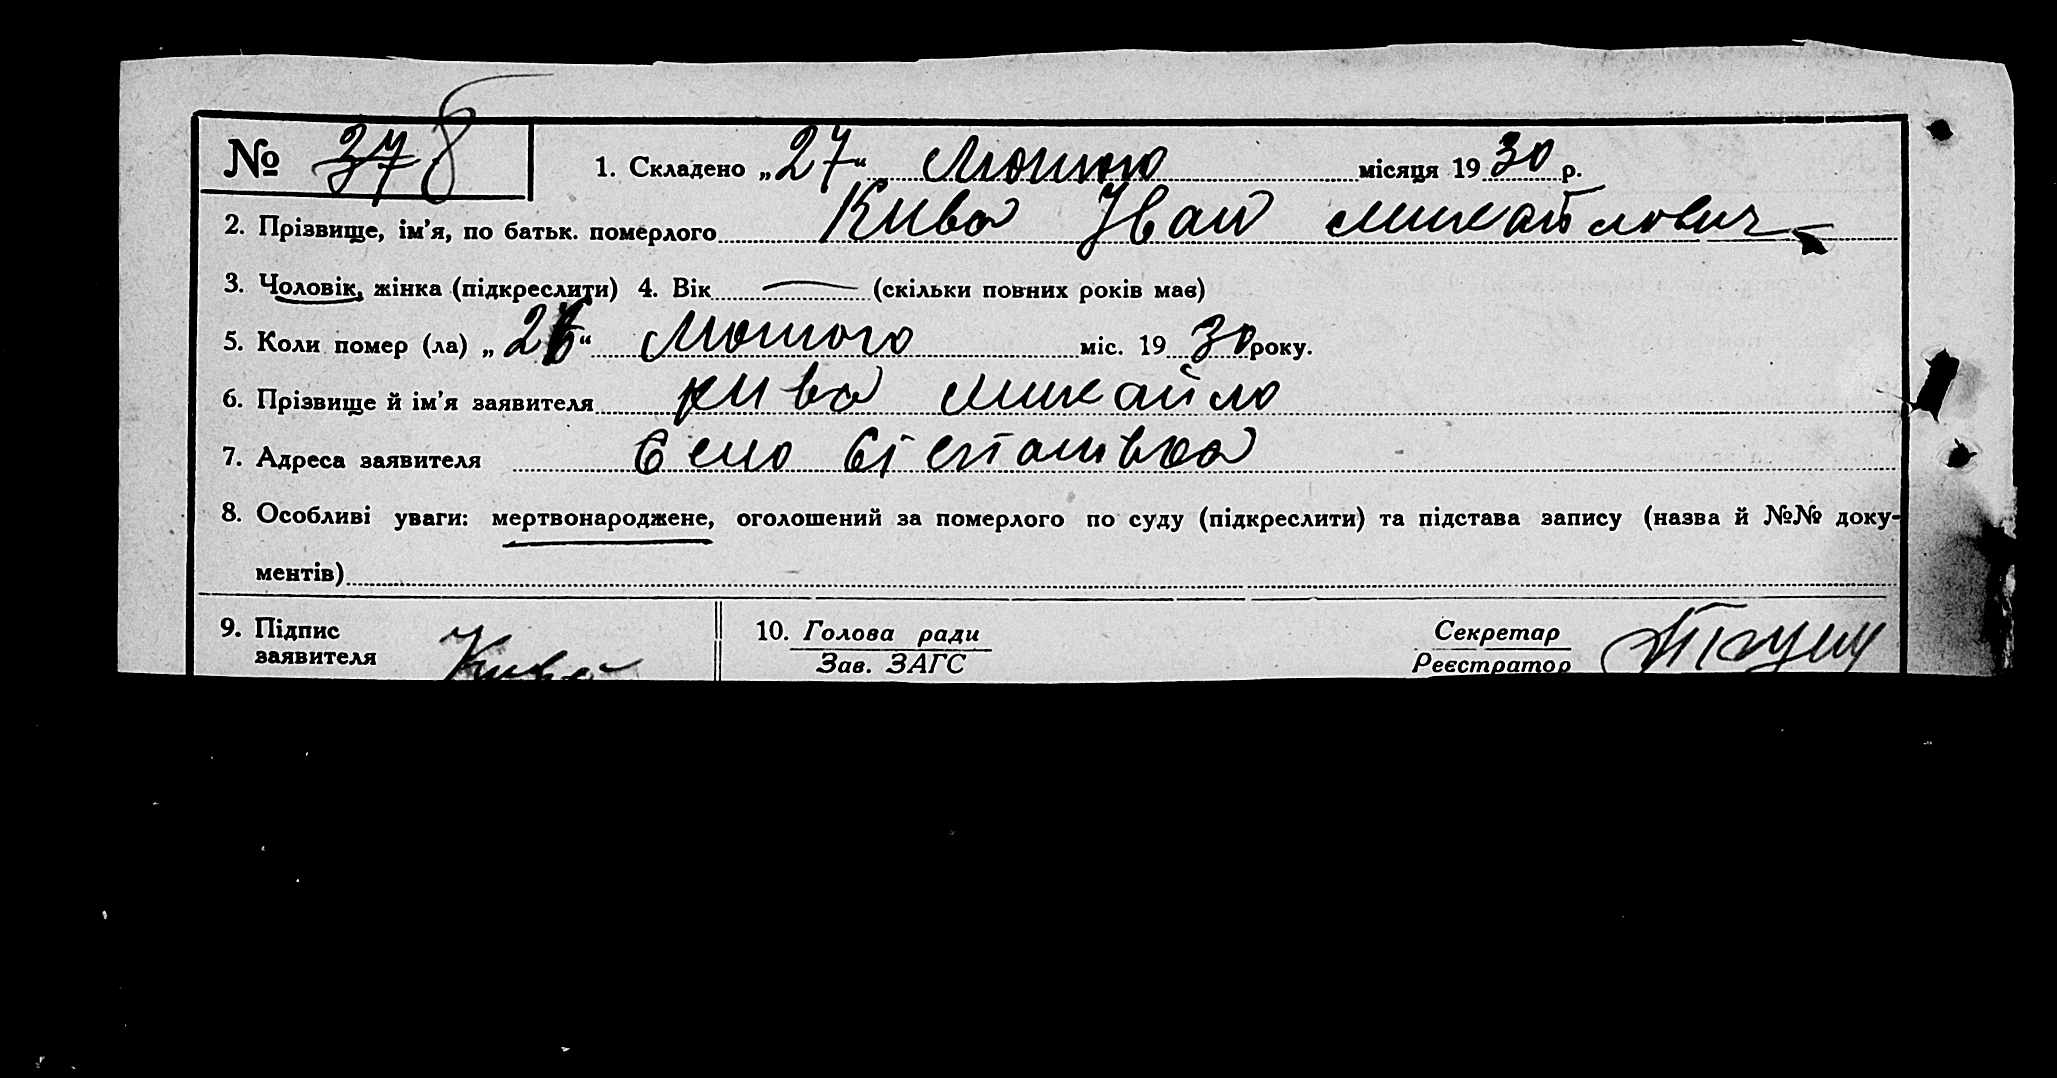 № 378
1. Складено „27“ Лютого місяця 1930 р.
2. Прізвище, ім’я, по батьк. померлого Кива Іван Михайлович
3. Чоловік, жінка (підкреслити) 4. Вік — (скільки повних років має)
5. Коли помер (ла) „26“ Лютого міс. 1930 року.
6. Прізвище й ім’я заявителя Кива Михайло
7. Адреса заявителя Село
8. Особливі уваги: мертвонароджене, оголошений за померлого по суду (підкреслити) та підстава запису (назва й №№ доку-
ментів)
9. Підпис
заявителя Кива
10. Голова ради
Зав. ЗАГС
Секретар
Реєстратор